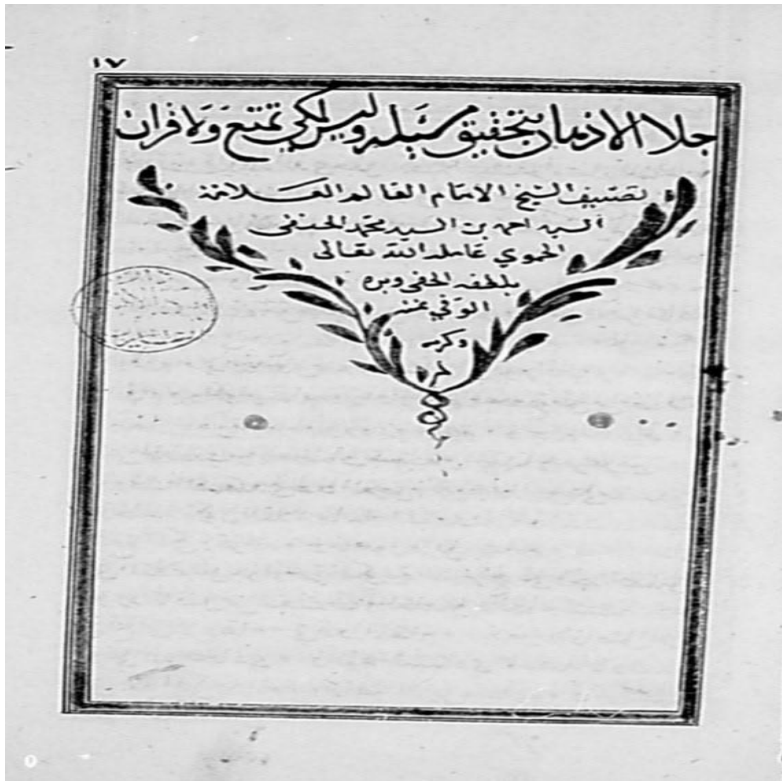 ١٧
جلا الاذهان بتحقيق مسئلة وليس لمكي تمتع ولا قران
تصنيف الشيخ الامام العالم العلامة
السيد احمد بن السيد محمد الحنفي
الحموي عامله الله تعالى
بلطفه الخفي وبره
الوفي بمنه
وكرمه
م